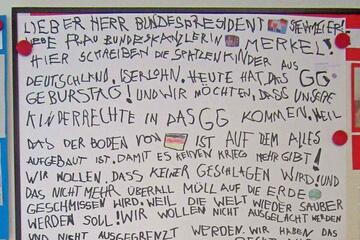 LIEBER HERR BUNDESPRESIDENT STEINMEIER!
LIEBE FRAU BUNDESKANZLERIN MERKEL!
HIER SCHREIBEN DIE SPATZENKINDER AUS
DEUTSCHLAND, ISERLOHN. HEUTE HAT DAS GG
GEBURSTAG! UND WIR MÖCHTEN, DASS UNSERE
KINDERRECHTE IN DAS GG KOMMEN. WEIL
DAS DER BODEN VON IST AUF DEM ALLES
AUFGEBAUT IST. DAMIT ES KEINEN KRIEG MEHR GIBT!
WIR WOLLEN, DASS KEINER GESCHLAGEN WIRD UND
DAS NICHT MEHR ÜBERALL MÜLL AUF DIE ERDE
GESCHMISSEN WIRD. WEIL DIE WELT WIEDER SAUBER
WERDEN SOLL! WIR WOLLEN NICHT AUSGELACHT WERDEN
UND NICHT AUSGEGRENZT WERDEN. WIR HABEN DAS